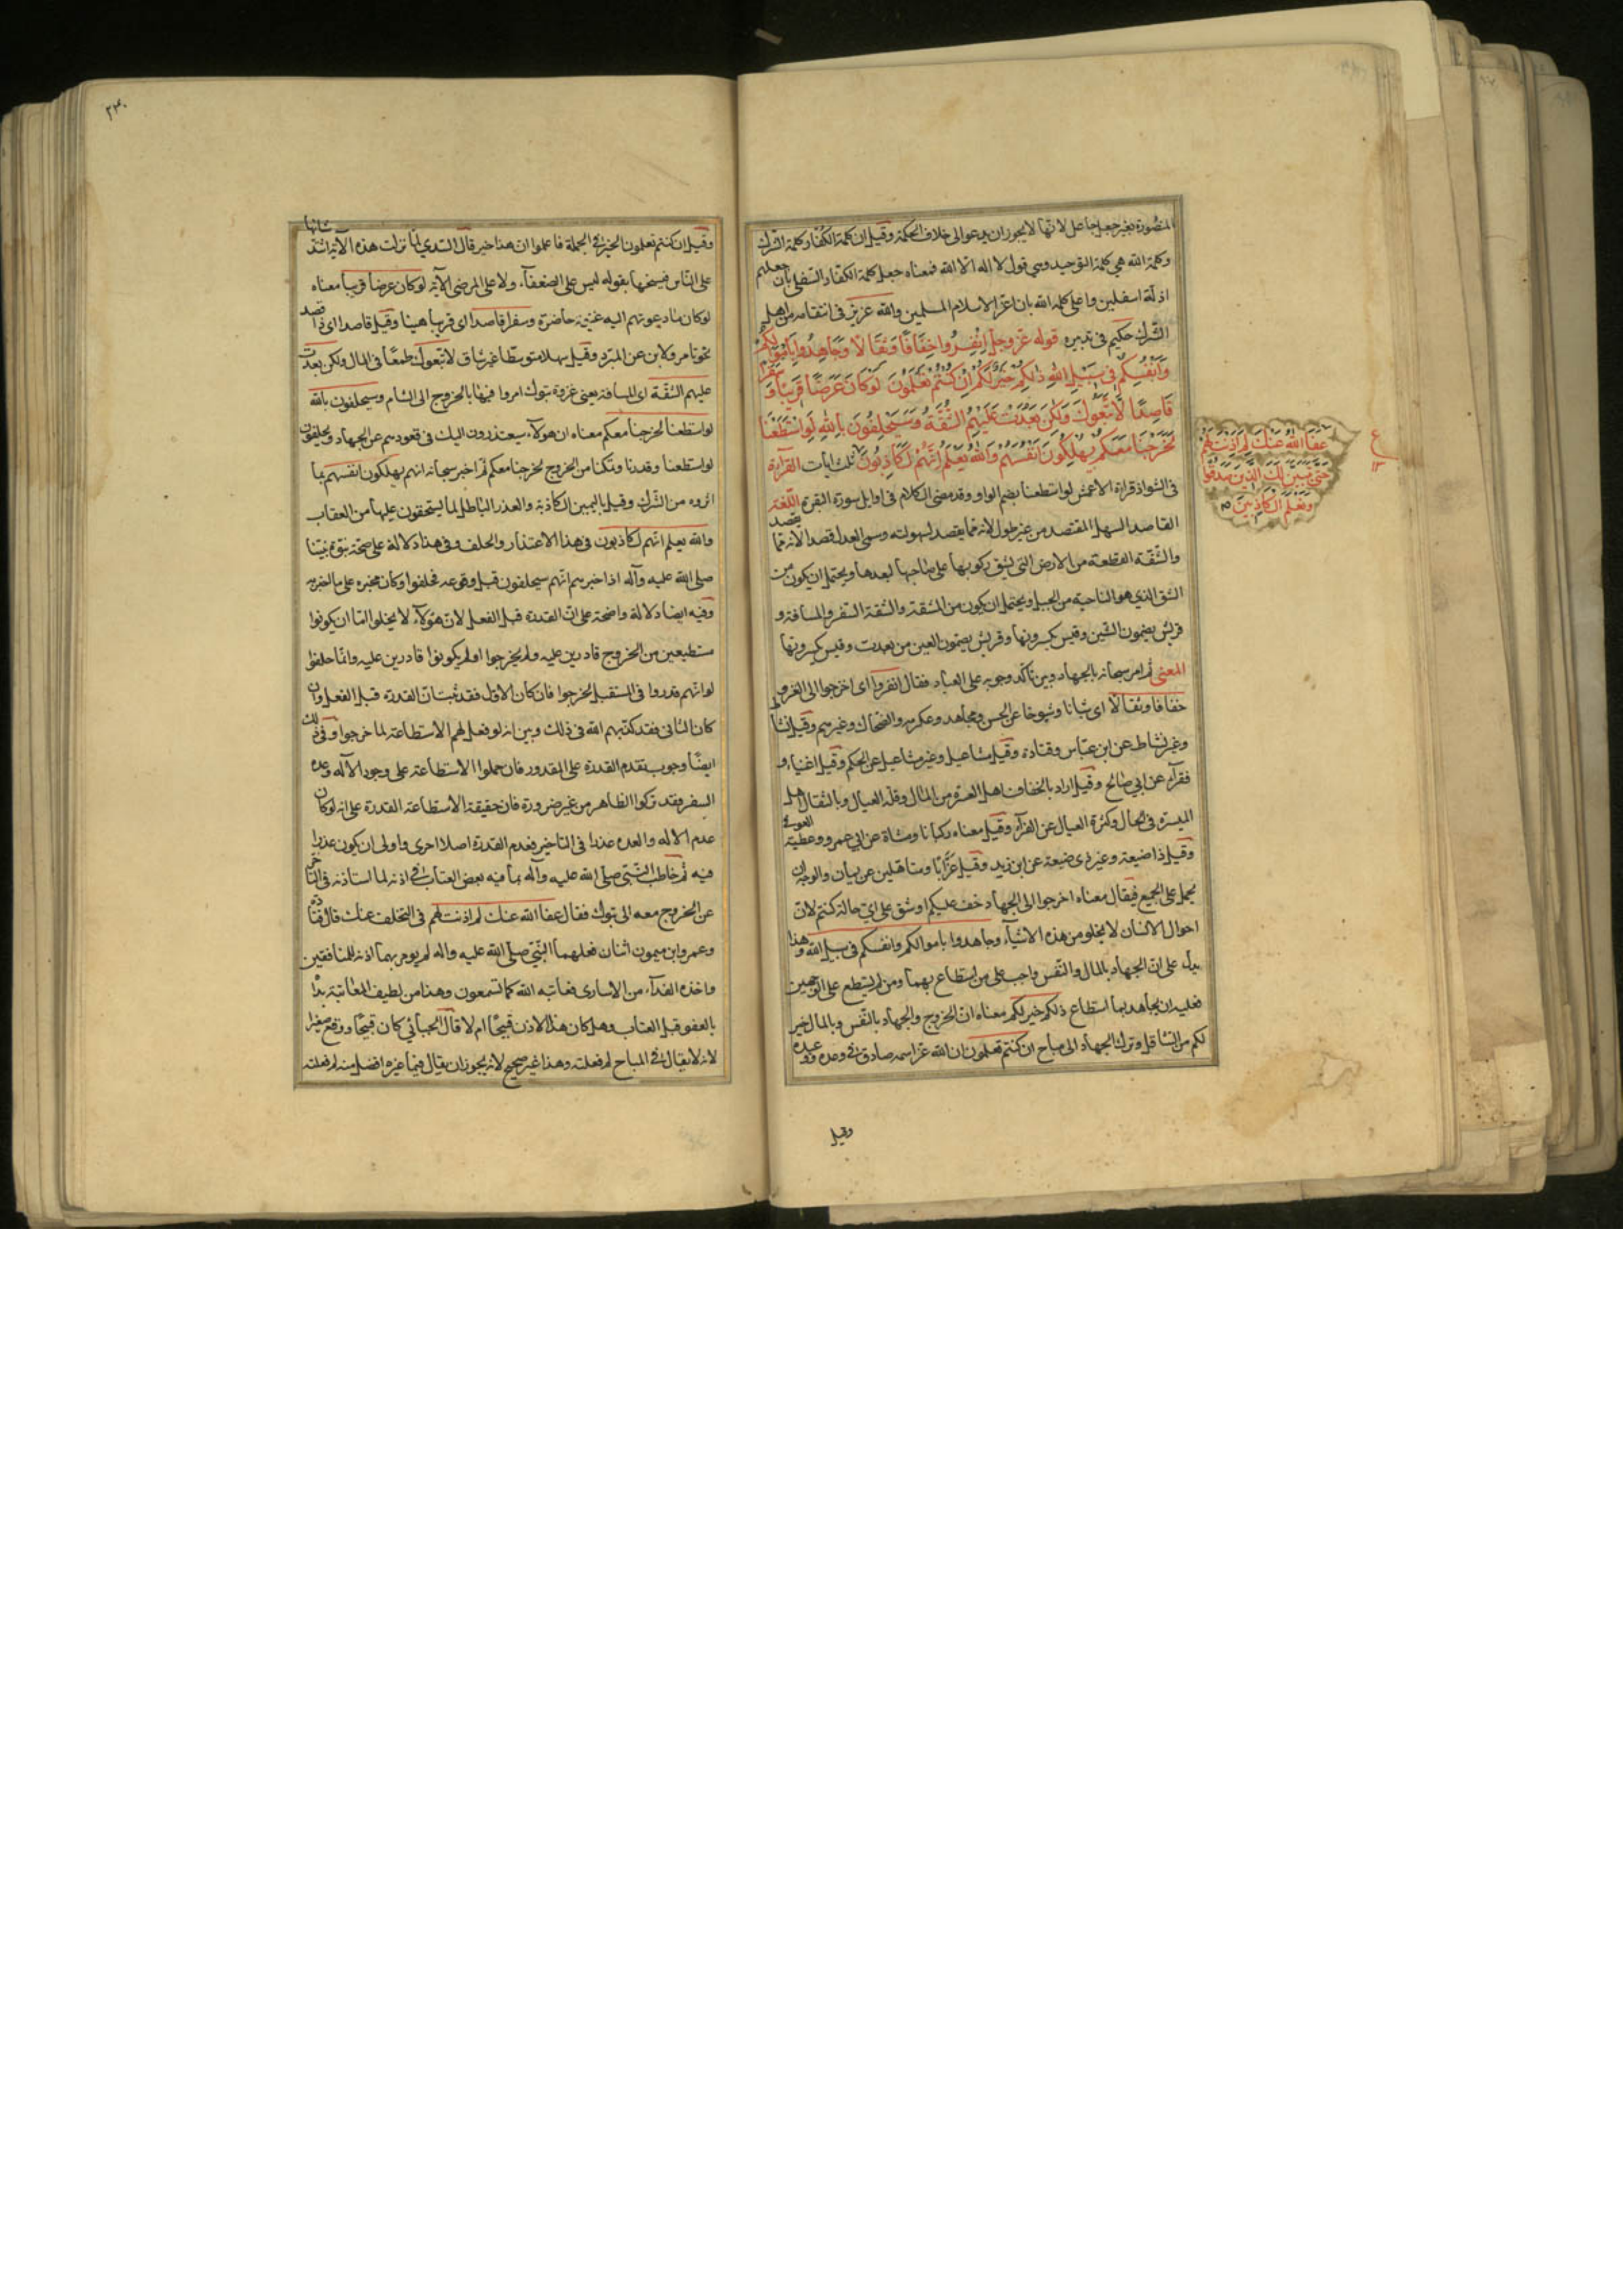 المنصورة بغير جعل جاعل لانها لا يجوز ان يدعو الى خلاف الحكمة وقيل ان كلمة الكفار كلمة الشرك
وكلمة الله هي كلمة التوحيد وهي قول لا اله الا الله فمعناه جعل كلمة الكفار السفلى بان جعلهم
اذلة اسفلين واعلى كلمة الله بان اعز الاسلام المسلمين والله عزيز في انتقامه من اهل
الشرك حكيم في تدبيره قوله عز وجل انفروا خفافا وثقالا وجاهدوا باموالكم
وانفسكم في سبيل الله ذلكم خير لكم ان كنتم تعلمون لو كان عرضا قريبا وسفرا
قاصدا لاتبعوك ولكن بعدت عليهم الشقة وسيحلفون بالله لو استطعنا
لخرجنا معكم يهلكون انفسهم والله يعلم انهم لكاذبون ثلث ايات القراءة
في الشواذ قراءة الاعمش لو استطعنا بضم الواو وقد مضى الكلام في اوايل سورة البقرة اللغة
القاصد السهل المقتصد من غير طول لانه مما يقصد لسهولته وسمي العدل قصدا لانه مما يقصد
والشقة القطعة من الارض التي يشق ركوبها على صاحبها لبعدها ويحتمل ان يكون من
الشق الذي هو الناحية من الجبل ويحتمل ان يكون من المشقة والشقة السفر والمسافة و
قريش يضمون الشين وقيس يكسرونها وقريش يضمون العين من بعدت وقيس يكسرونها
المعنى ثم امر سبحانه بالجهاد وبين تاكد وجوبه على العباد فقال انفروا اى اخرجوا الى الغزو
خفافا وثقالا اى شبانا وشيوخا عن الحسن ومجاهد وعكرمه والضحاك وغيرهم وقيل نشاطا
وغير نشاط عن ابن عباس وقتادة وقيل مشاغيل وغير مشاغيل عن الحكم وقيل اغنياء و
فقراء عن ابي صالح وقيل اراد بالخفاف اهل العسرة من المال وقلة العيال وبالثقال اهل
الميسرة في الحال وكثرة العيال عن الفراء وقيل معناه ركبانا ومشاة عن ابي عمرو وعطية العوفي
وقيل ذا ضيعة وغير ذى ضيعة عن ابن زيد وقيل عزابا ومتاهلين عن يمان والوجه ان
يحمل على الجميع فيقال معناه اخرجوا الى الجهاد خف عليكم او شق على اى حالة كنتم لان
احوال الانسان لا يخلو من هذه الاشياء وجاهدوا باموالكم وانفسكم في سبيل الله وهذا
يدل على ان الجهاد بالمال والنفس واجب على من استطاع بهما ومن لم يستطع على الوجهين
فعليه ان يجاهد بما استطاع ذلكم خير لكم معناه ان الخروج والجهاد بالنفس وبالمال خير
لكم من التثاقل وترك الجهاد الى مباح ان كنتم تعلمون ان الله عز اسمه صادق في وعده ووعيده
وقيل
عفا الله عنك لم اذنت لهم
حتى يتبين لك الذين صدقوا
وتعلم الكاذبين
ع
١٣
٢٣٠
وقيل ان كنتم تعلمون الخير في الجملة فاعلموا ان هذا خير قال السدي لما نزلت هذه الآية اشتد شانها
على الناس فنسخها بقوله ليس على الضعفاء ولا على المرضى الآية لو كان عرضا قريبا معناه
لو كان ما دعوتهم اليه غنيمة حاضرة وسفرا قاصدا اى قريبا هينا وقيل قاصدا اى ذا قصد
نحو تامر ولابن عن المبرد وقيل سهلا متوسطا غير شاق لاتبعوك طمعا في المال ولكن بعدت
عليهم الشقة اى المسافة يعني غزوة تبوك امروا فيها بالخروج الى الشام وسيحلفون بالله
لو استطعنا لخرجنا معكم معناه ان هولاء سيعتذرون اليك في قعودهم عن الجهاد ويحلفون
لو استطعنا وقدرنا وتمكنا من الخروج لخرجنا معكم ثم اخبر سبحانه انهم يهلكون انفسهم بما
اثروه من الشرك وقيل باليمين الكاذبة والعذر الباطل لما يستحقون عليها من العقاب
والله يعلم انهم لكاذبون في هذا الاعتذار والحلف وفي هذا دلالة على صحة نبوة نبينا
صلى الله عليه وآله اذ اخبرهم انهم سيحلفون قبل وقوعه فحلفوا وكان مخبره على ما اخبر به
وفيه ايضا دلالة واضحة على ان القدرة قبل الفعل لان هؤلاء لا يخلوا اما ان يكونوا
مستطيعين من الخروج قادرين عليه ولم يخرجوا او لم يكونوا قادرين عليه وانما حلفوا
لو انهم قدروا في المستقبل لخرجوا فان كان الاول فقد ثبت ان القدرة قبل الفعل وان
كان الثاني فقد كذبهم الله في ذلك وبين انه لو فعل لهم الاستطاعة لما خرجوا وفي ذلك
ايضا وجوب تقدم القدرة على المقدور فان حملوا الاستطاعة على وجود الآله وعدة
السفر فقد تركوا الظاهر من غير ضرورة فان حقيقة الاستطاعة القدرة على انه لو كان
عدم الاله والعدة عذرا في التاخير فعدم القدرة اصلا احرى واولى ان يكون عذرا
فيه ثم خاطب النبي صلى الله عليه وآله بما فيه بعض العتاب في اذنه لما استاذنه في التاخر
عن الخروج معه الى تبوك فقال عفا الله عنك لم اذنت لهم في التخلف عنك قال قتادة
وعمرو ابن ميمون اثنان فعلهما النبي صلى الله عليه واله لم يومر بهما اذنه للمنافقين
واخذه الفداء من الاسارى فعاتبه الله كما تسمعون وهذا من لطيف المعاتبة بدا
بالعفو قبل العتاب وهل كان هذا الاذن قبيحا ام لا قال الجبائي كان قبيحا ووقع صغيرا
لانه لا يقال في المباح لم فعلته وهذا غير صحيح لانه يجوز ان يقال فيما غيره افضل منه لم فعلته